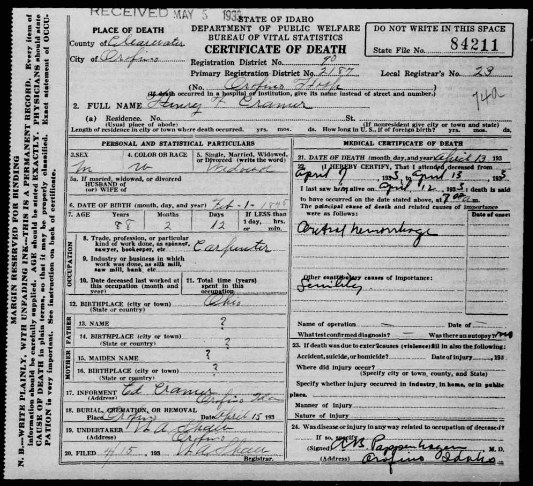 RECEIVED MAY 5 1933
PLACE OF DEATH
County of Clearwater
City of Orofino
STATE OF IDAHO
DEPARTMENT OF PUBLIC WELFARE
BUREAU OF VITAL STATISTICS
CERTIFICATE OF DEATH
DO NOT WRITE IN THIS SPACE
State File No. 84211
Registration District No. 90
Primary Registration District No. 2187
Local Registrar's No. 23
Orofino Idaho
(If death occurred in a hospital or institution, give its name instead of street and number.)
74a
2. FULL NAME Henry F Cramer
(a) Residence. No. St.
(Usual place of abode) (If nonresident give city or town and state)
Length of residence in city or town where death occurred. yrs. mos. ds. How long in U. S., if of foreign birth? yrs. mos. ds.
PERSONAL AND STATISTICAL PARTICULARS
3. SEX
M
4. COLOR OR RACE
W
5. Single, Married, Widowed, or Divorced (write the word)
Widowed
5a. If married, widowed, or divorced
HUSBAND of
(or) WIFE of
6. DATE OF BIRTH (month, day, and year) Feb-1-1845
7. AGE Years Months Days If LESS than 1 day, hrs. or min.
88 2 12
OCCUPATION
8. Trade, profession, or particular kind of work done, as spinner, sawyer, bookeeper, etc
Carpenter
9. Industry or business in which work was done, as silk mill, saw mill, bank, etc
10. Date deceased last worked at this occupation (month and year)
11. Total time (years) spent in this occupation
12. BIRTHPLACE (city or town) Ohio
(State or country)
FATHER
13. NAME ?
14. BIRTHPLACE (city or town) ?
(State or country)
MOTHER
15. MAIDEN NAME ?
16. BIRTHPLACE (city or town) ?
(State or country)
17. INFORMENT Ed Cramer
(Address) Orofino Idaho
18. BURIAL, CREMATION, OR REMOVAL
Place Orofino Date April 15 193
19. UNDERTAKER
(Address) Orofino
20. FILED 4/15, 193
Registrar.
MEDICAL CERTIFICATE OF DEATH
21. DATE OF DEATH (month, day, and year) April 13 193
22. I HEREBY CERTIFY, That I attended deceased from
April 9 1933, April 13 1933
I last saw him alive on April 12 1933; death is said
to have occurred on the date stated above, at
The principal cause of death and related causes of importance were as follows: Date of onset
Cerebral hemorrhage
Other contributory causes of importance:
Senility
Name of operation Date of
What test confirmed diagnosis? Was there an autopsy no
23. If death was due to exter'lcauses (violence) fill in also the following:
Accident, suicide, or homicide? Date of injury, 193
Where did injury occur?
(Specify city or town, county, and State)
Specify whether injury occurred in industry, in home, or in public place.
Manner of injury
Nature of injury
24. Was disease or injury in any way related to occupation of deceased?
If so, specify
(Signed) Pappenhagen M. D.
(Address) Orofino Idaho
MARGIN RESERVED FOR BINDING
N. B.—WRITE PLAINLY, WITH UNFADING INK—THIS IS A PERMANENT RECORD. Every item of
information should be carefully supplied. AGE should be stated EXACTLY. PHYSICIANS should state
CAUSE OF DEATH in plain terms, so that it may be properly classified. Exact statement of OCCU-
PATION is very important. See instruction on back of certificate.